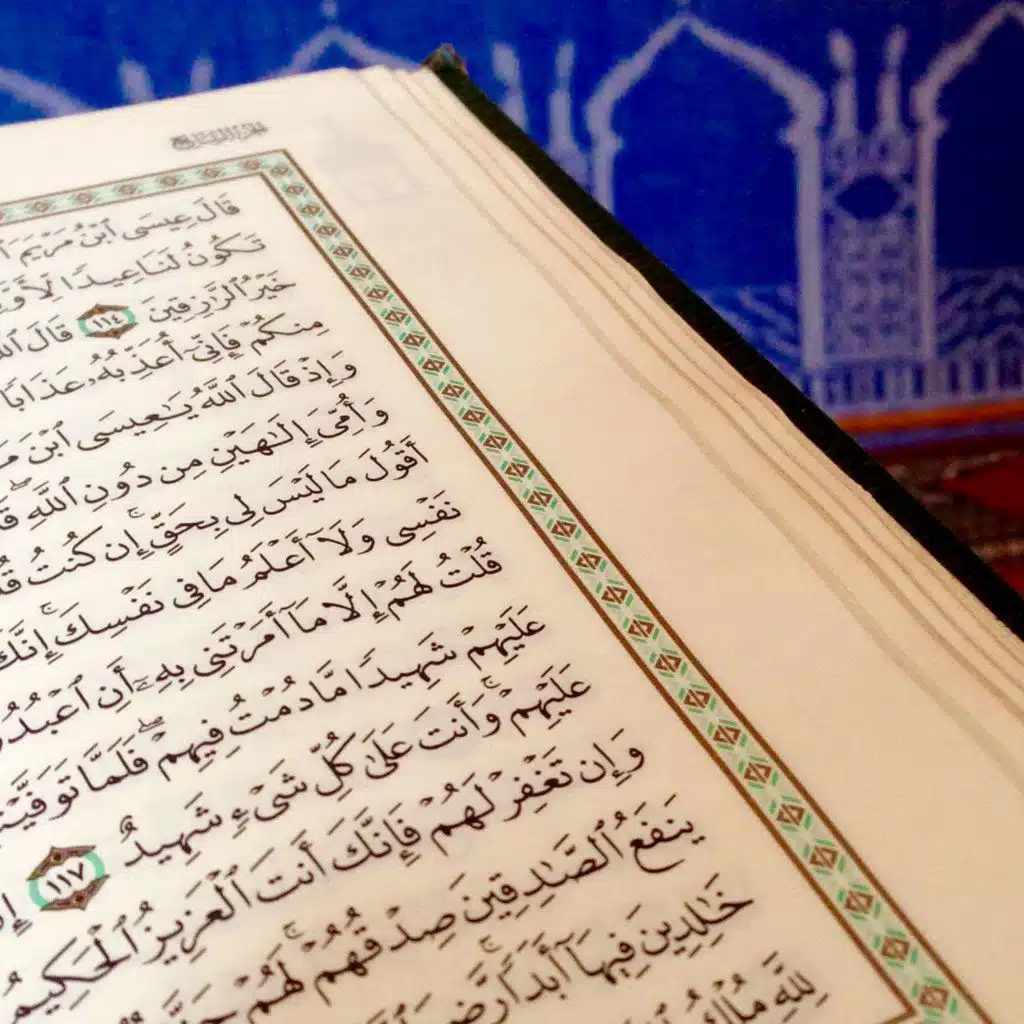 قَالَ عِيسَى ٱبْنُ مَرْيَمَ
تَكُونُ لَنَا عِيدًا لِّأَوَّلِنَا
خَيْرُ ٱلرَّٰزِقِينَ ١١٤ قَالَ ٱللَّهُ
مِنكُمْ فَإِنِّىٓ أُعَذِّبُهُۥ عَذَابًا
وَإِذْ قَالَ ٱللَّهُ يَٰعِيسَى ٱبْنَ
وَأُمِّىَ إِلَٰهَيْنِ مِن دُونِ ٱللَّهِ ۖ
أَقُولَ مَا لَيْسَ لِى بِحَقٍّ ۚ إِن كُنتُ
نَفْسِى وَلَآ أَعْلَمُ مَا فِى نَفْسِكَ ۚ إِنَّكَ
قُلْتُ لَهُمْ إِلَّا مَآ أَمَرْتَنِى بِهِۦٓ أَنِ ٱعْبُدُوا۟
عَلَيْهِمْ شَهِيدًا مَّا دُمْتُ فِيهِمْ ۖ فَلَمَّا تَوَفَّيْتَنِى
عَلَيْهِمْ ۚ وَأَنتَ عَلَىٰ كُلِّ شَىْءٍ شَهِيدٌ ١١٧
وَإِن تَغْفِرْ لَهُمْ فَإِنَّكَ أَنتَ ٱلْعَزِيزُ ٱلْحَكِيمُ
يَنفَعُ ٱلصَّٰدِقِينَ صِدْقُهُمْ ۚ لَهُمْ
خَٰلِدِينَ فِيهَآ أَبَدًا ۚ رَّضِىَ
لِلَّهِ مُلْكُ